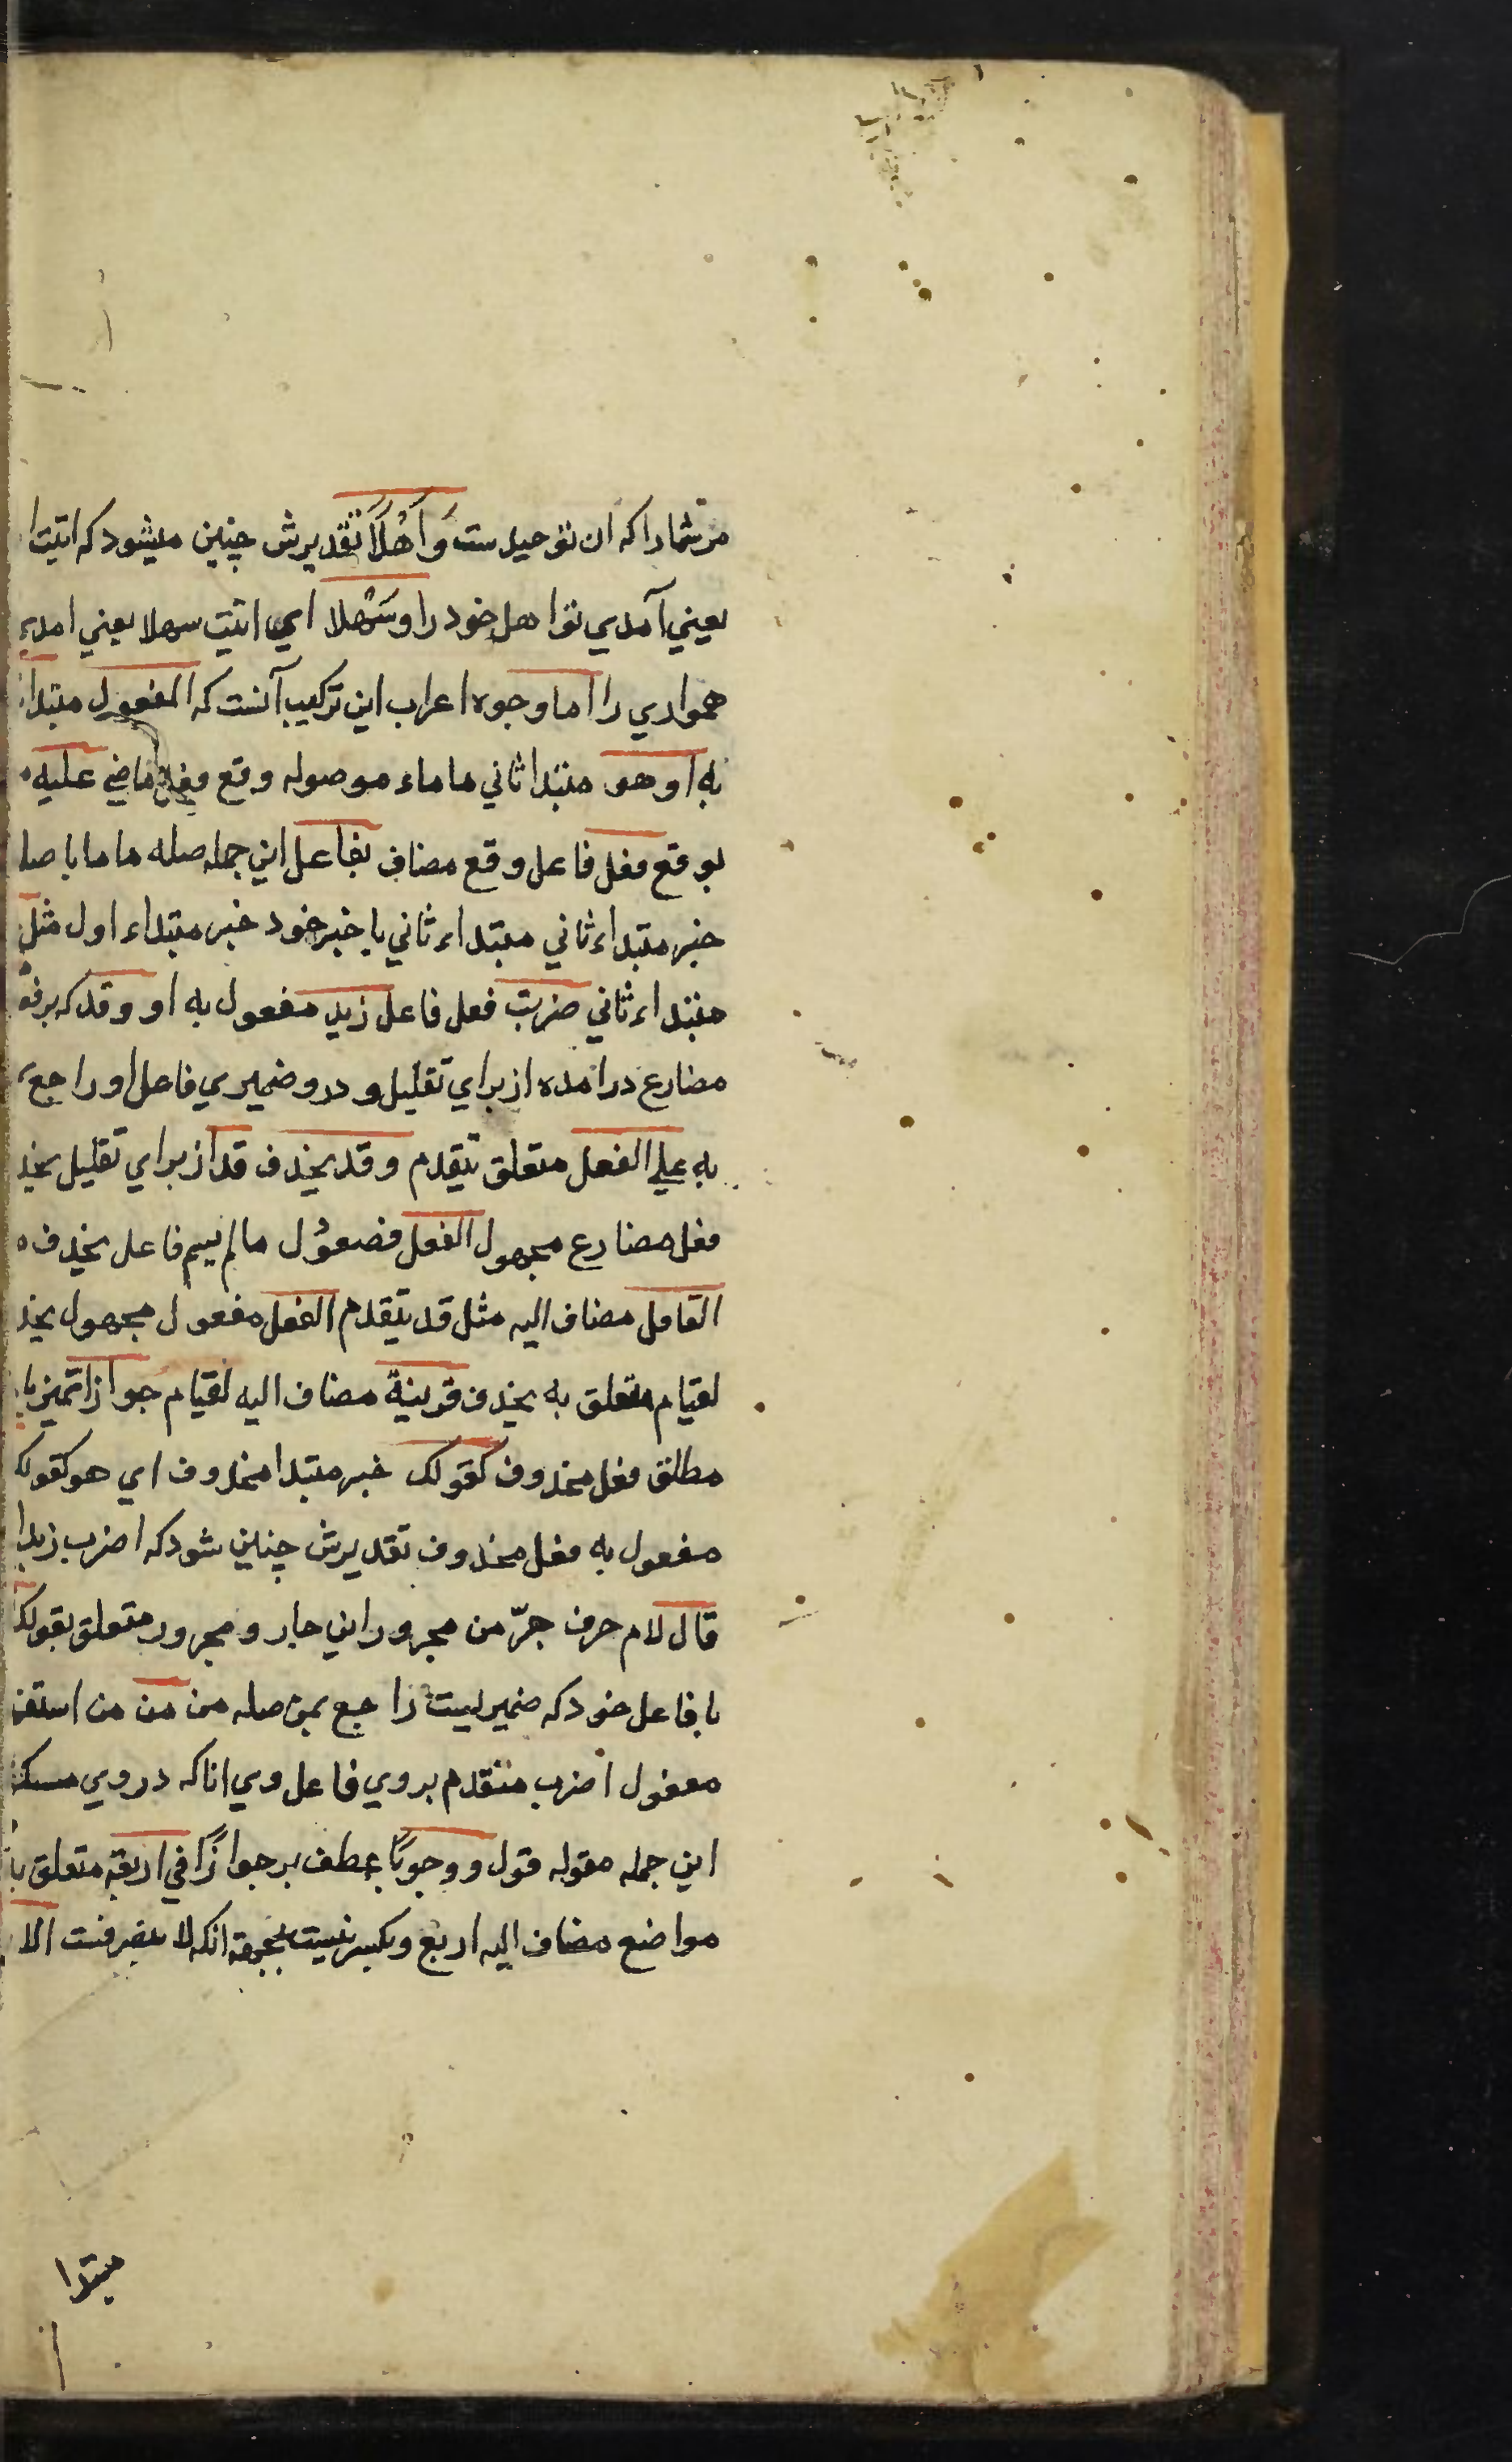 مر شما را که ان توحیدست وَاَهْلًا تقدیرش چنین میشود که اتیت ا
یعنی آمدی تو اهل خود را وسَهْلا ای اتیت سهلا یعنی امدی
همواری را اما وجوه اعراب این ترکیب آنست که المفعول مبتدا
به او هو مبتدا ثانی ما ماء موصوله وقع فعل ماضی علیه
بوقع فعل فاعل وقع مضاف بفاعل این جمله صله ما ما با صله
خبر مبتداء ثانی مبتداء ثانی با خبر خود خبر مبتداء اول مثل
مبتداء ثانی ضربت فعل فاعل زید مفعول به او وقد که بر فع
مضارع درامده از برای تقلیل و درو ضمیری فاعل او راجع
به علی الفعل متعلق یتقدم وقد یحذف قد از برای تقلیل یحذ
فعل مضارع مجهول الفعل مفعول ما لم یسم فاعل یحذف
العامل مضاف الیه مثل قد یتقدم الفعل مفعول مجهول یحذ
لقیام متعلق به یحذف قرینة مضاف الیه لقیام جوازا تمیز یا
مطلق فعل محذوف کقولک خبر مبتدا محذوف ای هو کقولک
مفعول به فعل محذوف تقدیرش چنین شود که اضرب زیدا
قال لام حرف جرّ من مجرور این جار و مجرور متعلق بقولک
با فاعل خود که ضمیریست راجع بمن صله من من من استفه
مفعول اضرب متقدم بروی فاعل وی انا که در وی مستکن
این جمله مقوله قول ووجوبًا عطف بر جوازًا فی اربعة متعلق با
مواضع مضاف الیه اربع وبکسر نیست بجهة انکه لا ینصرفست الا
مبتدا